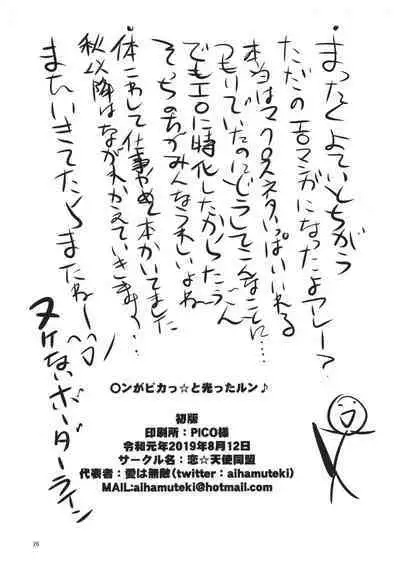 ・まったくよていとちがう
ただのエロマンガになったよアレー？
本当はマクロスネタいっぱいいれる
つもりでいたのにどうしてこんなことに…
でもエロに特化したからたぶん
そっちの方がみんなうれしいよね
・体こわして仕事やめて本かいてました
秋以降はながれかえていきまっ
またいきてたらまたねー
ヌケないボーダーライン
〇ンがピカっ☆と光ったルン♪
初版
印刷所：PICO様
令和元年2019年8月12日
サークル名：恋☆天使同盟
代表者：愛は無敵(twitter：aihamuteki)
MAIL:aihamuteki@hotmail.com